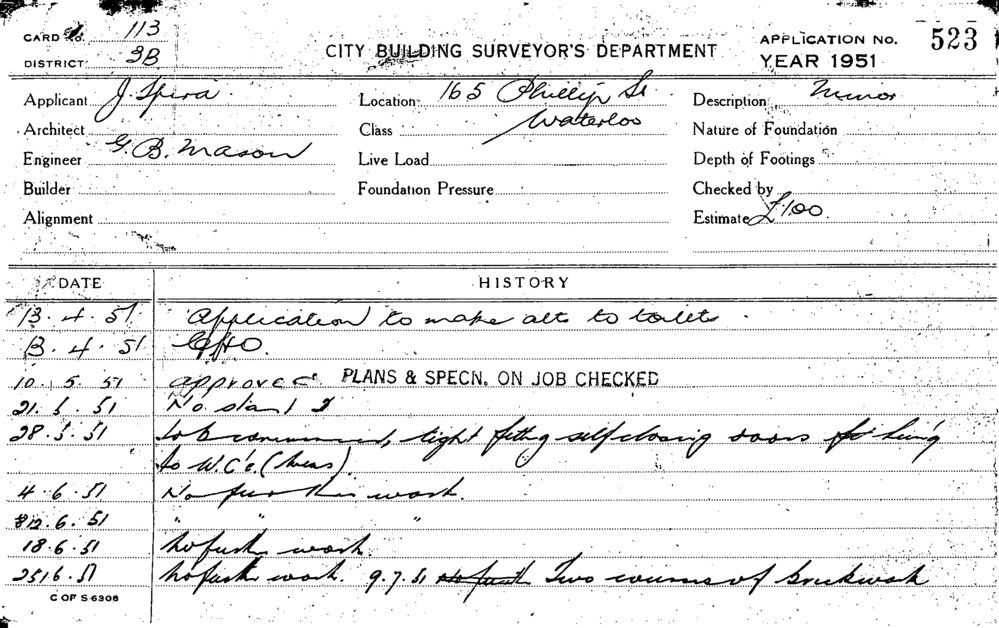 CARD No. 113
DISTRICT 3B
CITY BUILDING SURVEYOR'S DEPARTMENT
APPLICATION No. 523
YEAR 1951
Applicant J. Spira
Location 165 Phillip St
Waterloo
Description Minor
Architect
Class
Nature of Foundation
Engineer G. B. Mason
Live Load
Depth of Footings
Builder
Foundation Pressure
Checked by
Alignment
Estimate £100
DATE HISTORY
13.4.51 Application to make alts to toilets
13.4.51
10.5.51 approved PLANS & SPECN. ON JOB CHECKED
21.5.51 No start
28.5.51 Job commenced, tight fitting self closing doors
to W.C's.
4.6.51 No further work.
12.6.51 " " "
18.6.51 No further work.
25.6.51 No further work. 9.7.51 Two courses of brickwork
C OF S 6308